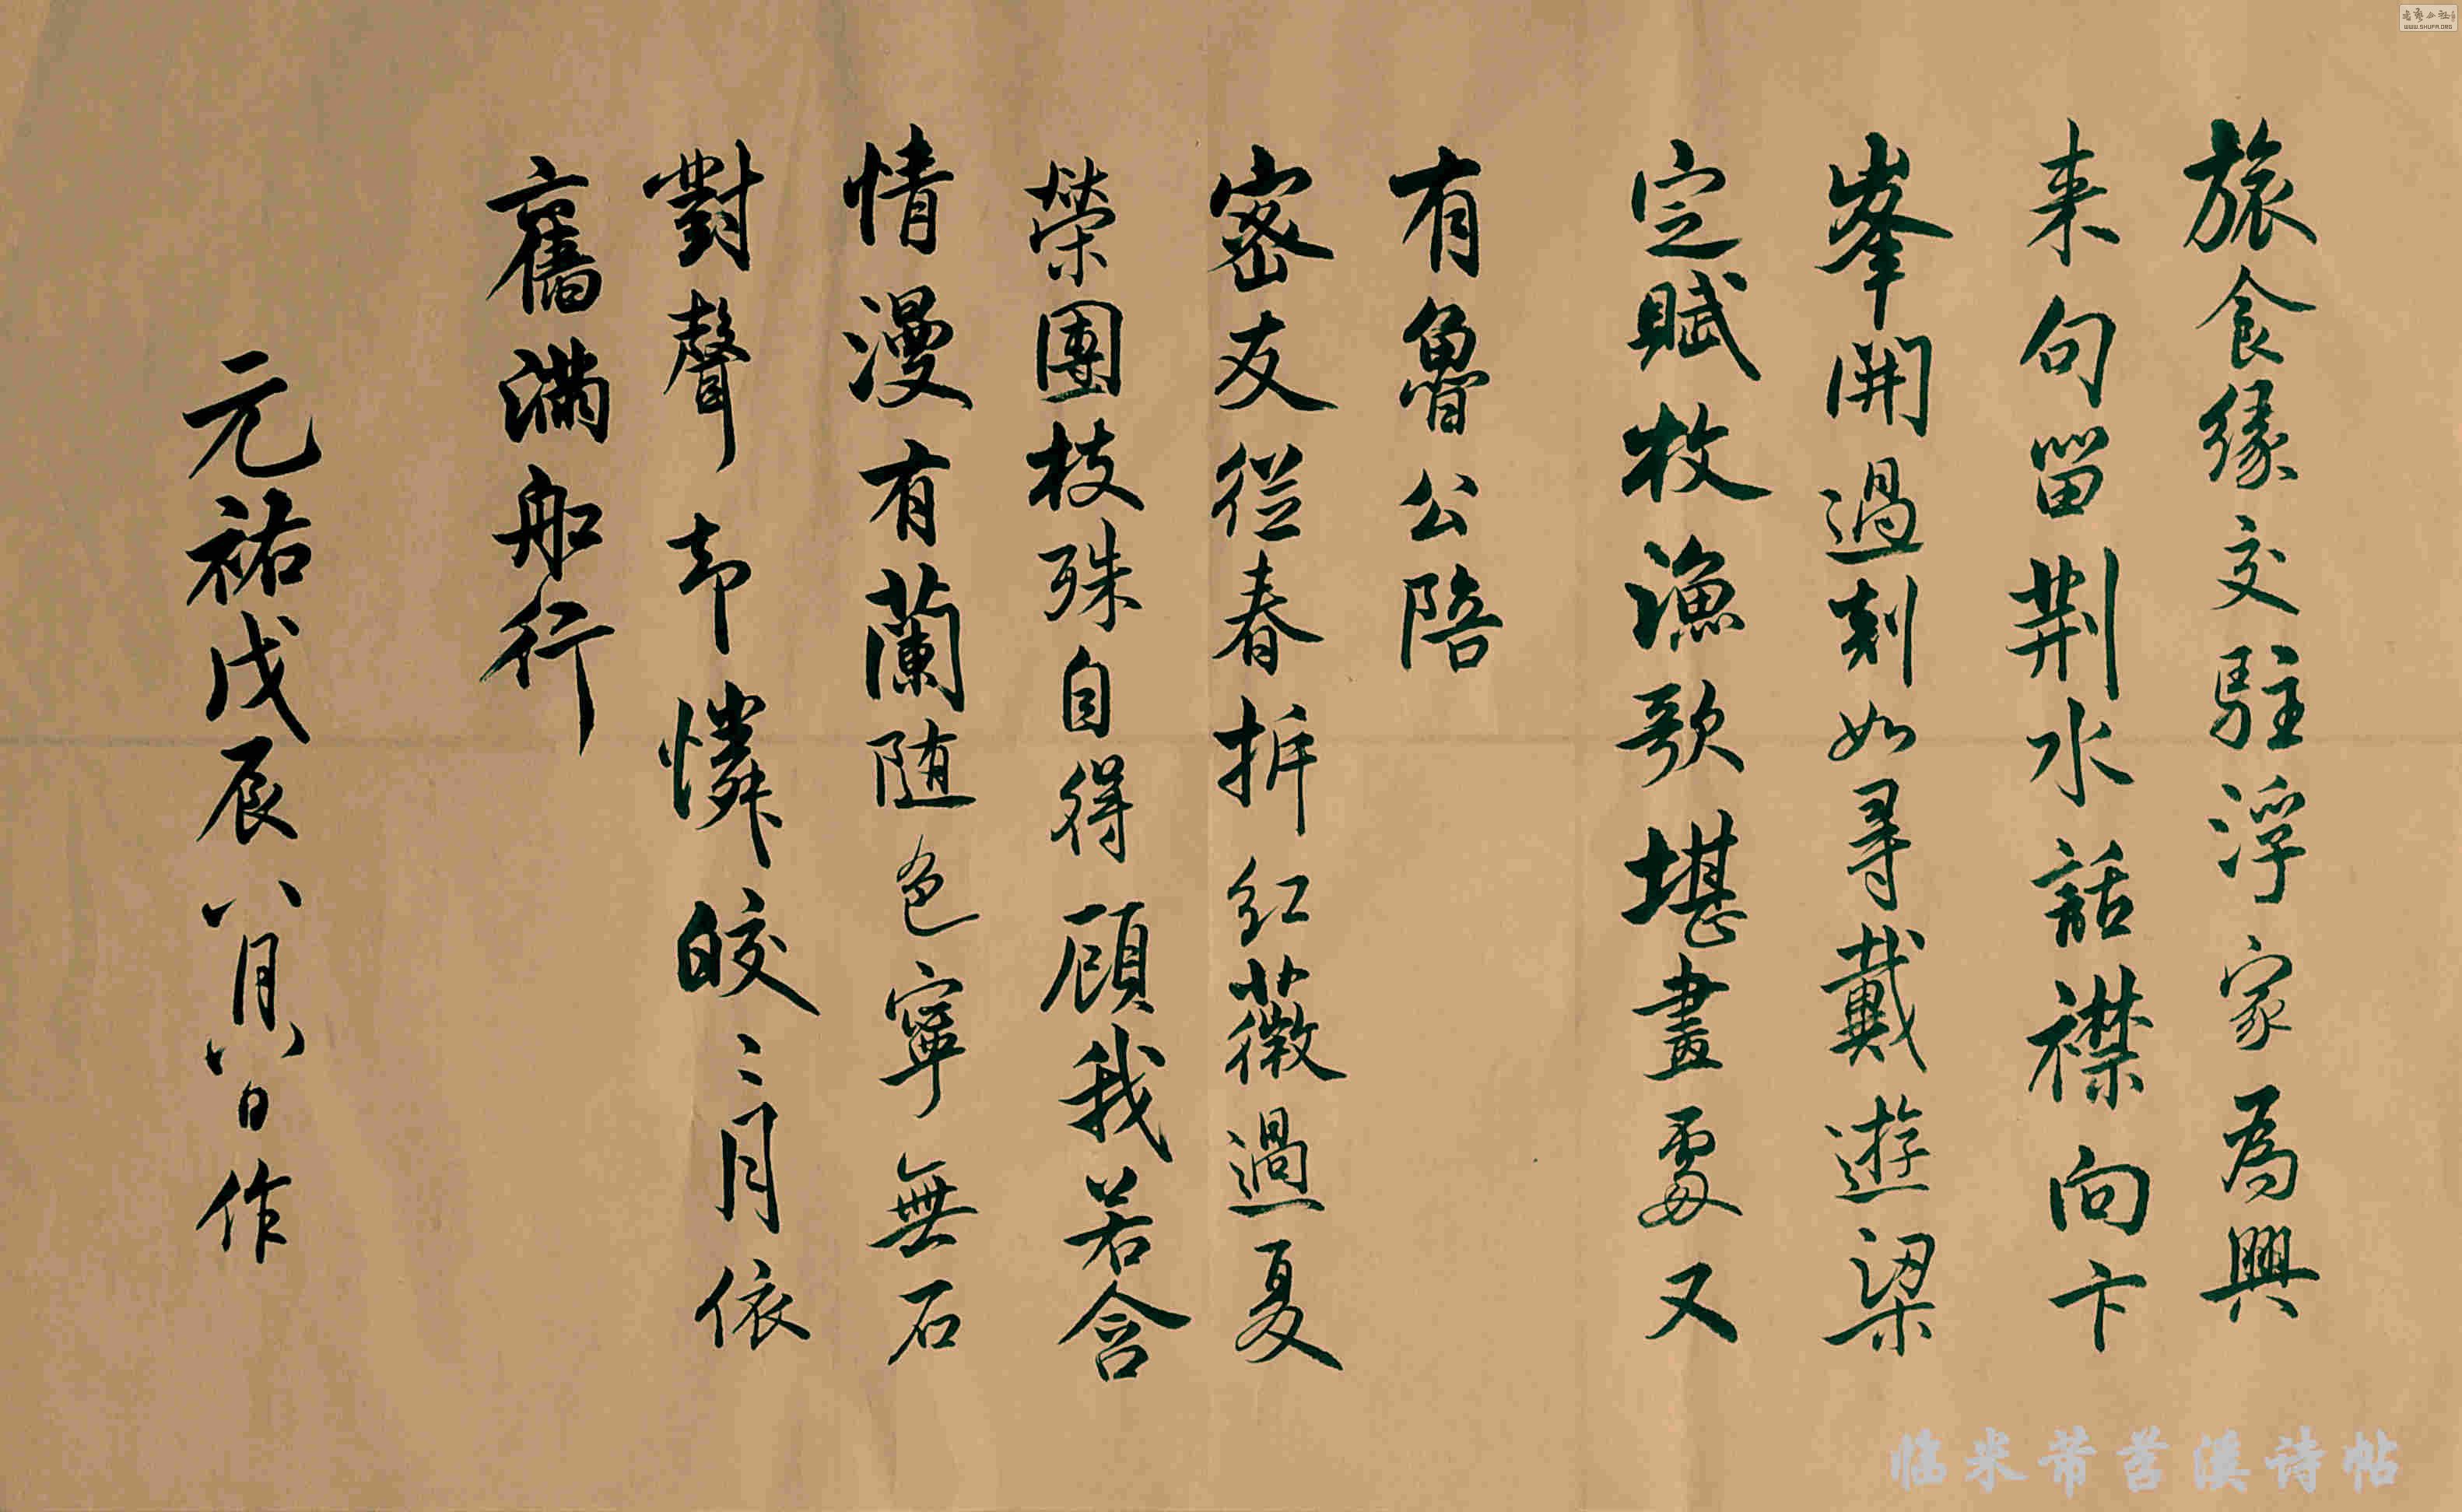 旅食緣交駐浮家為興
来句留荆水話襟向卞
峯開過剡如尋戴遊梁
定賦枚漁歌堪畫處又
有魯公陪
密友從春拆紅薇過夏
榮團枝殊自得顧我若含
情漫有蘭随色寧無石
對聲却憐皎〻月依
舊滿船行
元祐戊辰八月八日作
临米芾苕溪诗帖
WWW.SHUFA.ORG